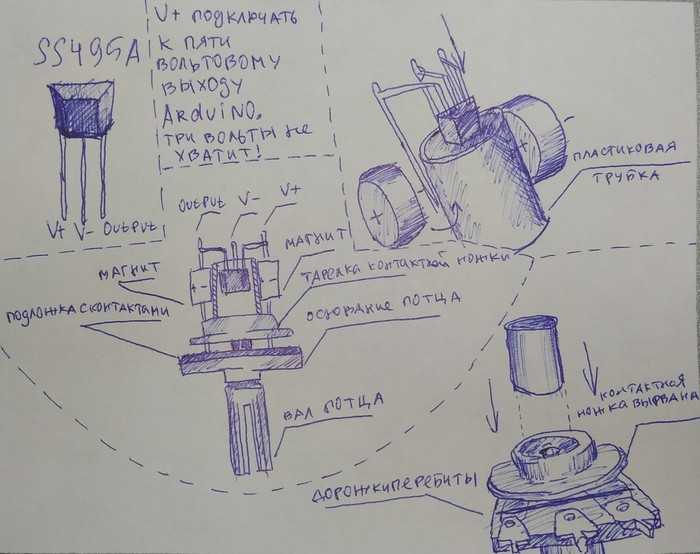 SS495A
V+ ПОДКЛЮЧАТЬ
К ПЯТИ
ВОЛЬТОВОМУ
ВЫХОДУ
ARDUINO.
ТРИ ВОЛЬТЫ НЕ
ХВАТИТ!
V+ V- OUTPUT
ПЛАСТИКОВАЯ
ТРУБКА
OUTPUT V- V+
МАГНИТ
МАГНИТ
ТАРЕЛКА КОНТАКТНОЙ НОЖКИ
ПОДЛОЖКА С КОНТАКТАМИ
ОСНОВАНИЕ ПОТЦА
ВАЛ ПОТЦА
КОНТАКТНАЯ
НОЖКА ВЫРВАНА
ДОРОЖКИ ПЕРЕБИТЫ
+ -
+
×